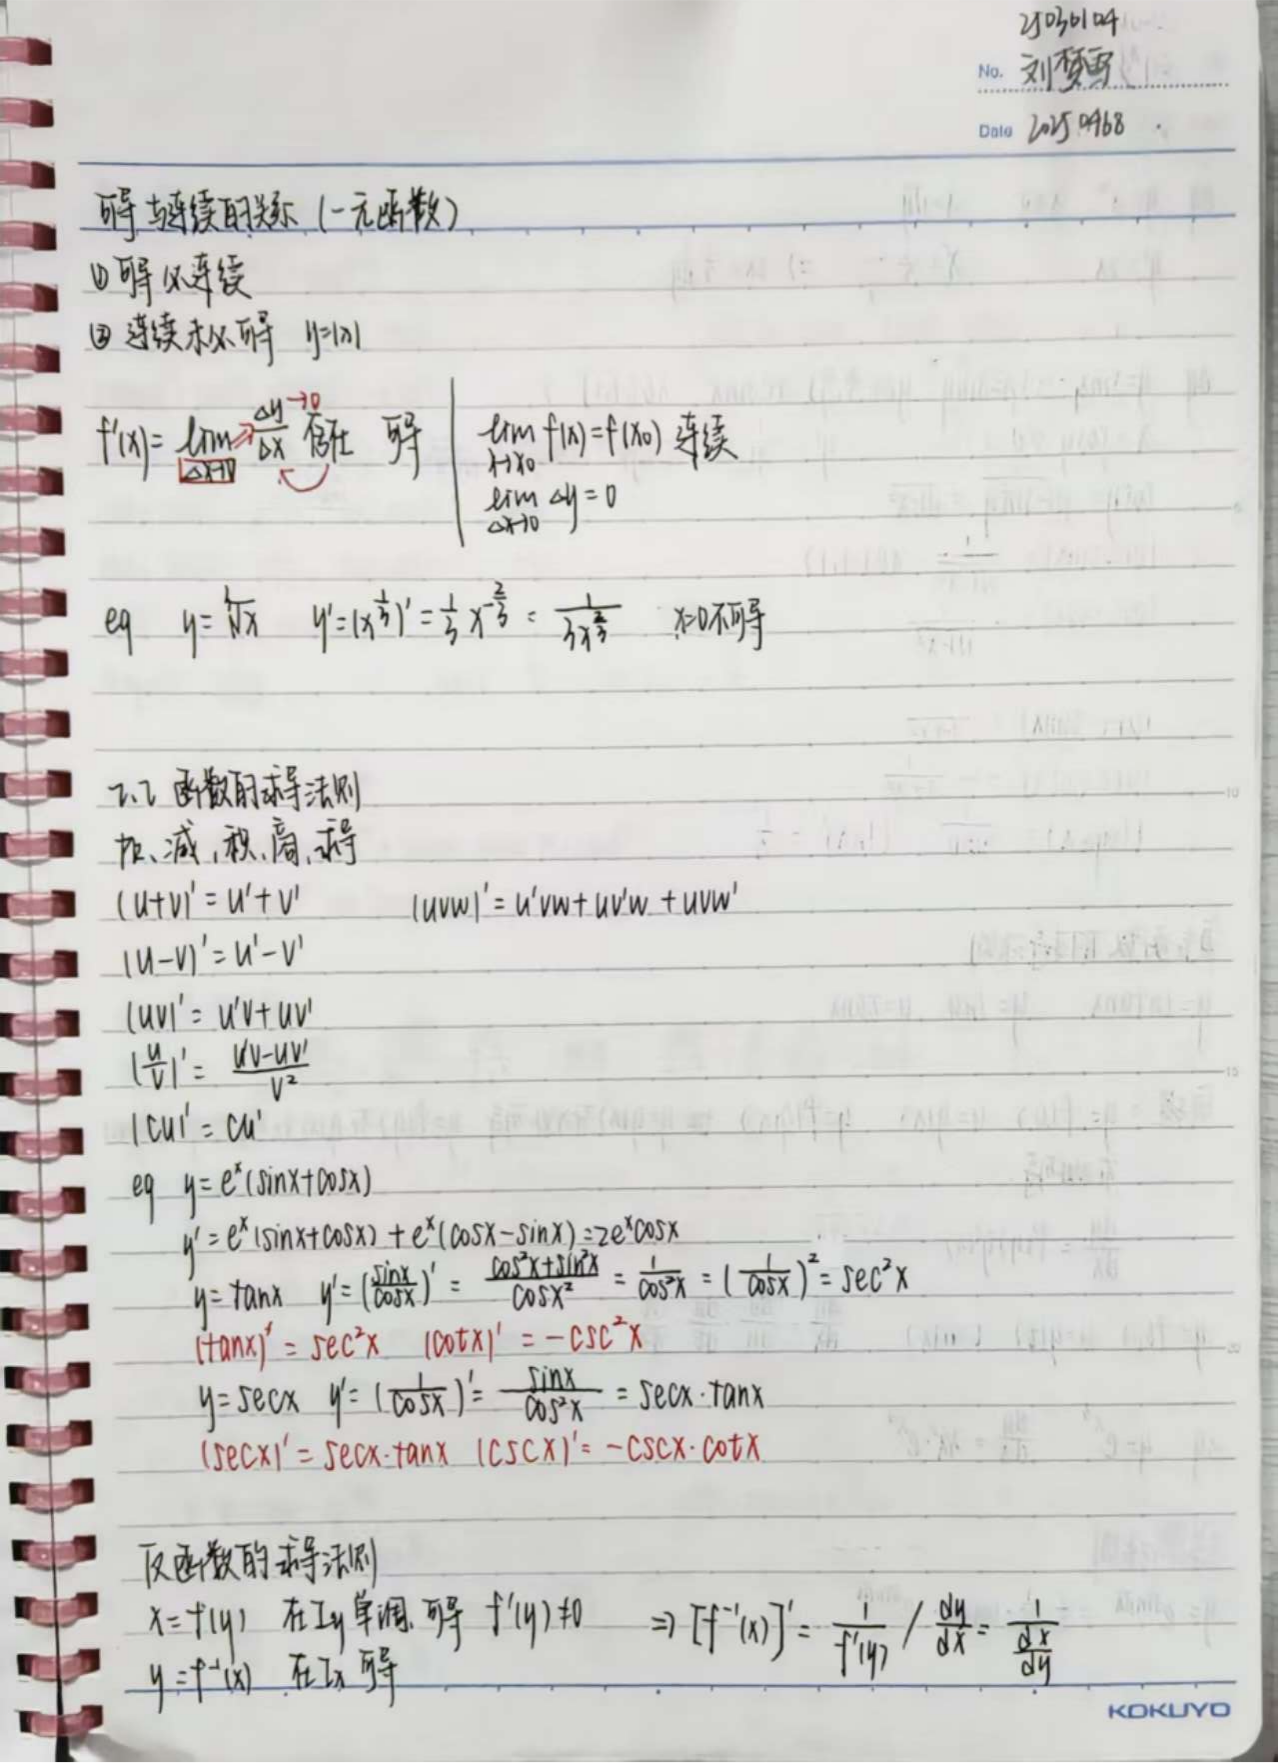 25030104
No. 刘梦雪
Date 20250968
可导与连续的关系 (一元函数)
① 可导必连续
② 连续未必可导 y=|x|
f'(x)= lim Δx→0 Δy→0/Δx 存在 可导
lim x→x0 f(x)=f(x0) 连续
lim Δx→0 Δy=0
eg y=∛x y'=(x^(1/3))'=1/3 x^(-2/3) = 1/(3x^(2/3)) x=0不可导
2.2 函数的求导法则
加、减、积、商、求导
(u+v)'=u'+v' (uvw)'=u'vw+uv'w+uvw'
(u-v)'=u'-v'
(uv)'=u'v+uv'
(u/v)'= (u'v-uv')/v²
(cu)'=cu'
eg y=eˣ(sinx+cosx)
y'=eˣ(sinx+cosx)+eˣ(cosx-sinx)=2eˣcosx
y=tanx y'=(sinx/cosx)'= (cos²x+sin²x)/cosx² = 1/cos²x = (1/cosx)²=sec²x
(tanx)'=sec²x (cotx)'=-csc²x
y=secx y'=(1/cosx)'= sinx/cos²x = secx·tanx
(secx)'=secx·tanx (cscx)'=-cscx·cotx
反函数的求导法则
x=f(y) 在Iy单调.可导 f'(y)≠0 ⇒ [f⁻¹(x)]'= 1/f'(y) / dy/dx = 1/(dx/dy)
y=f⁻¹(x) 在Ix可导
KOKUYO